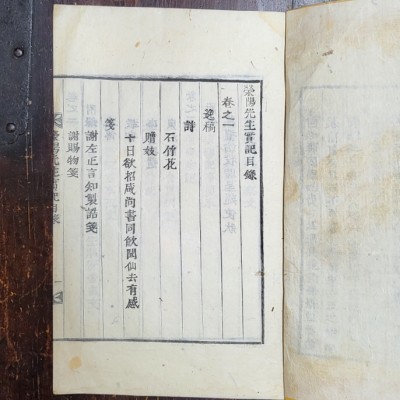 滎陽先生實記目錄
卷之一
逸稿
詩
石竹花
贈妓
十日欲招庾尙書同飮聞仙去有感
箋
謝左正言知製誥箋
謝賜物箋
滎陽先生實記目錄 一